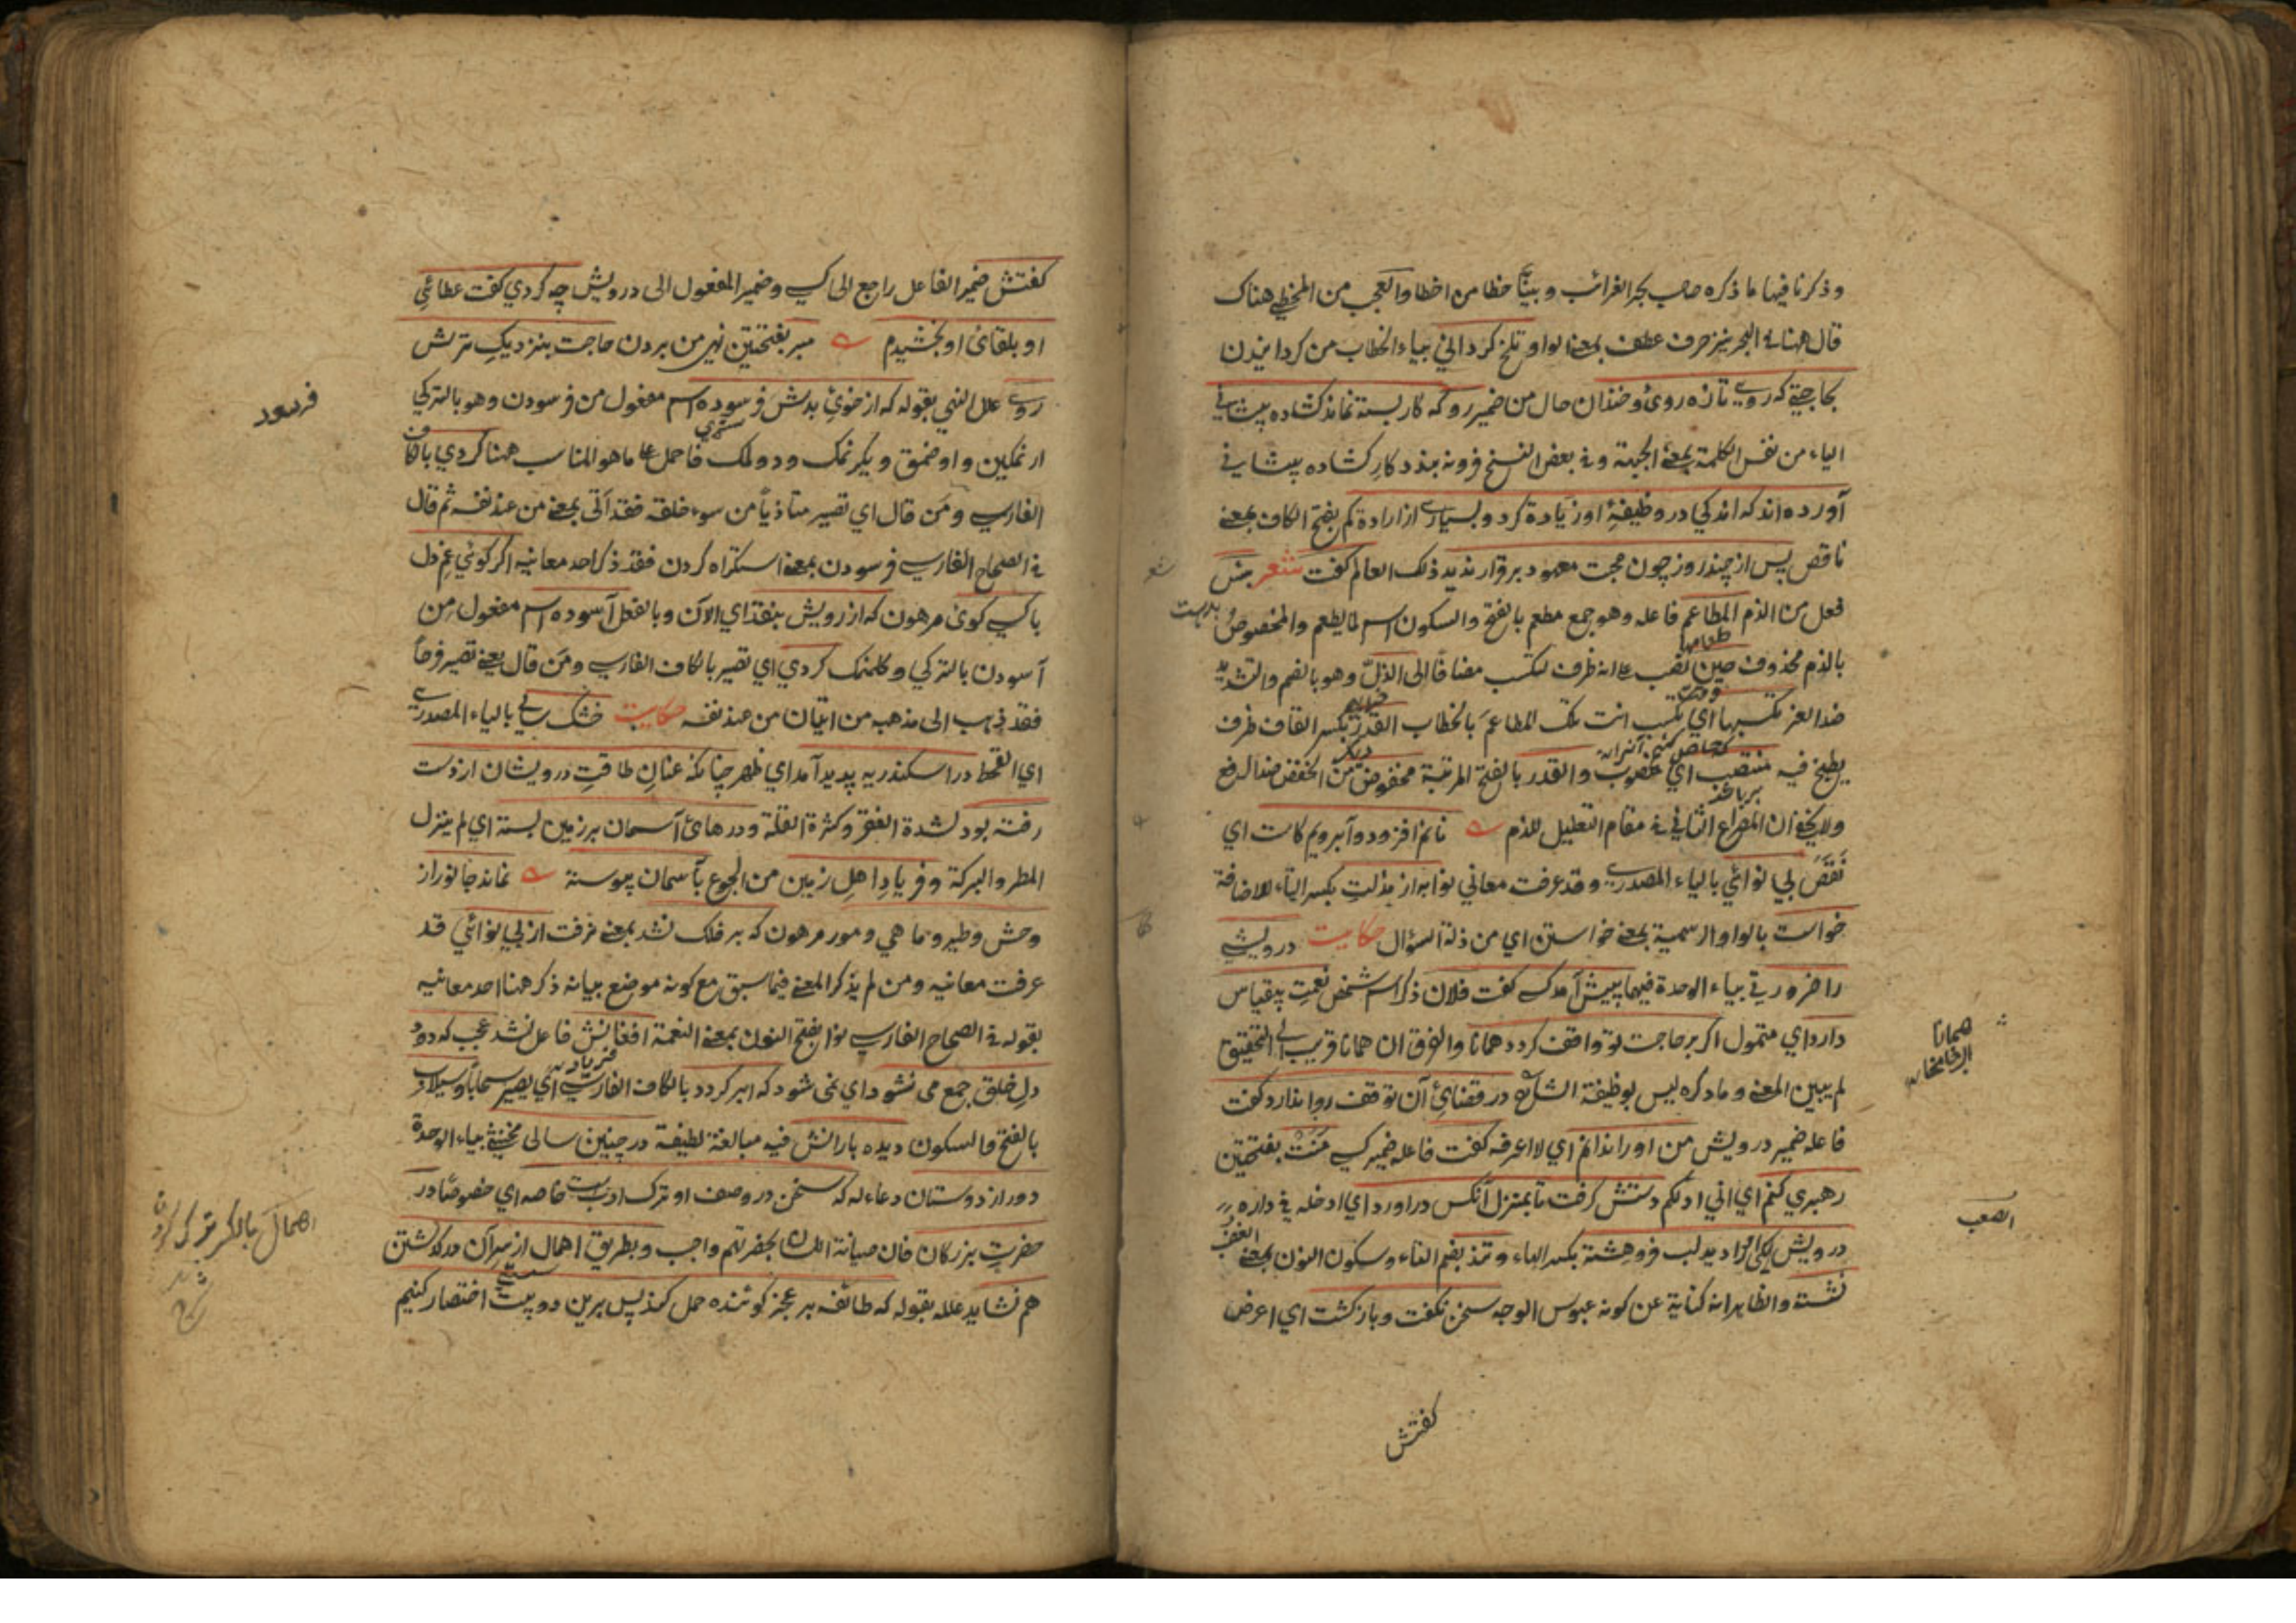 وذكرنا فيها ما ذكره صاحب بحر الغرائب وبينا خطا من اخطا والعجب من المخطي هناك
قال ههنا في البحر نيز حرف عطف بمعنى الواو تلخ كرداني بياء الخطاب من كردانيدن
بحاجتي كه روي تازه روي وخندان حال من ضمير رو كه كار بسته نماند كشاده پيشاني
الياء من نفس الكلمة بمعنى الجبهة وفي بعض النسخ فرو نه بندد كار كشاده پيشاني
آورده اند كه اندكي در وظيفهٔ او زيادة كرد و بسياري از ارادة كم بفتح الكاف بمعنى
ناقص پس از چند روز چون محبت معهود برقرار نديد ذلك العالم كفت شعر بئس
فعل من الذم المطاعم فاعله وهو جمع مطعم بالفتح والسكون اسم لما يطعم والمخصوص
بالذم محذوف حين نصب على انه ظرف لتكسب مضافا الى الذل وهو بالضم والتشديد
ضد العز تكسبها اي تكسب انت تلك المطاعم بالخطاب القدر بكسر القاف ظرف
يطبخ فيه منتصب اي منصوب والقدر بالفتح المرتبة مخفوض من الخفض ضد الرفع
ولا يخفى ان المصراع الثاني في مقام التعليل للذم نانم افزود و آبرويم كاست اي
نقص بي نوائي بالياء المصدري وقد عرفت معاني نوا به از مذلت بكسر التاء للاضافة
خواست بالواو الرسمية بمعنى خواستن اي من ذلة السؤال حكايت درويشي
را ضرورتي بياء الوحدة فيهما پيش آمد كسي كفت فلان ذكر اسم شخص نعمت بيقياس
دارد اي متمول اكر بر حاجت تو واقف كردد همانا والفرق ان همانا قريب الى التحقيق
لم يبين المعنى وما ذكره ليس بوظيفة الشارح در قضاي آن توقف روا ندارد كفت
فاعله ضمير درويش من او را ندانم اي لا اعرفه كفت فاعله ضمير كسي منت بفتحتين
رهبري كنم اي اني ادلكم دستش كرفت تا بمنزل آنكس در اورد اي ادخله في داره
درويش يكى را ديد لب فروهشته بكسر الهاء وتند بضم التاء وسكون النون بمعنى الغضب
نشسته والظاهر انه كناية عن كونه عبوس الوجه سخن نكفت وباز كشت اي اعرض
كفتش
همانا
كفتش ضمير الفاعل راجع الى كسي وضمير المفعول الى درويش چه كردي كفت عطاي
او بلقاى او بخشيدم مبر بفتحتين نهي من بردن حاجت بنزديك ترش
روي علل النهي بقوله كه از خوي بدش فرسوده اسم مفعول من فرسودن وهو بالتركي
ارنمكين و اوصنمق و يكرنمك و دوكلمك فاحمل على ما هو المناسب ههنا كردي بالكاف
الفارسي ومن قال اي تصير متاذيا من سوء خلقه فقد اتى بمعنى من عند نفسه ثم قال
في الصحاح الفارسي فرسودن بمعنى استكراه كردن فقد ذكر احد معانيه اكر كوئي غم دل
با كسي كوى مرهون كه از رويش بنقد اي الآن وبالفعل آسوده اسم مفعول من
آسودن بالتركي دكلنمك كردي اي تصير بالكاف الفارسي ومن قال يعنى تصير فرحا
فقد ذهب الى مذهبه من اتيان من عند نفسه حكايت خشك سالي بالياء المصدري
اي القحط در اسكندريه پديد آمد اي ظهر چنانكه عنان طاقت درويشان از دست
رفته بود لشدة الفقر وكثرة القلة و درهاى آسمان بر زمين بسته اي لم ينزل
المطر والبركة و فرياد اهل زمين من الجوع بآسمان پيوسته نماند جانور از
وحش وطير وماهي ومور مرهون كه بر فلك نشد بمعنى نرفت از بي نوائي قد
عرفت معانيه ومن لم يذكر المعنى فيما سبق مع كونه موضع بيانه ذكر ههنا احد معانيه
بقوله في الصحاح الفارسي نوا بفتح النون بمعنى النعمة افغانش فاعل نشد عجب كه دود
دل خلق جمع مى نشود اي نمى شود كه ابر كردد بالكاف الفارسي اي يصير سحابا و سيلاب
بالفتح والسكون ديده بارانش فيه مبالغة لطيفة در چنين سالى مخنثي بياء الوحدة
دور از دوستان دعاء له كه سخن در وصف او ترك ادبست خاصه اي خصوصا در
حضرت بزركان فان صيانة اللسان بحضرتهم واجب وبطريق اهمال از سر آن در كذشتن
هم نشايد علله بقوله كه طائفه بر عجز كوينده حمل كنند پس برين دو بيت اختصار كنيم